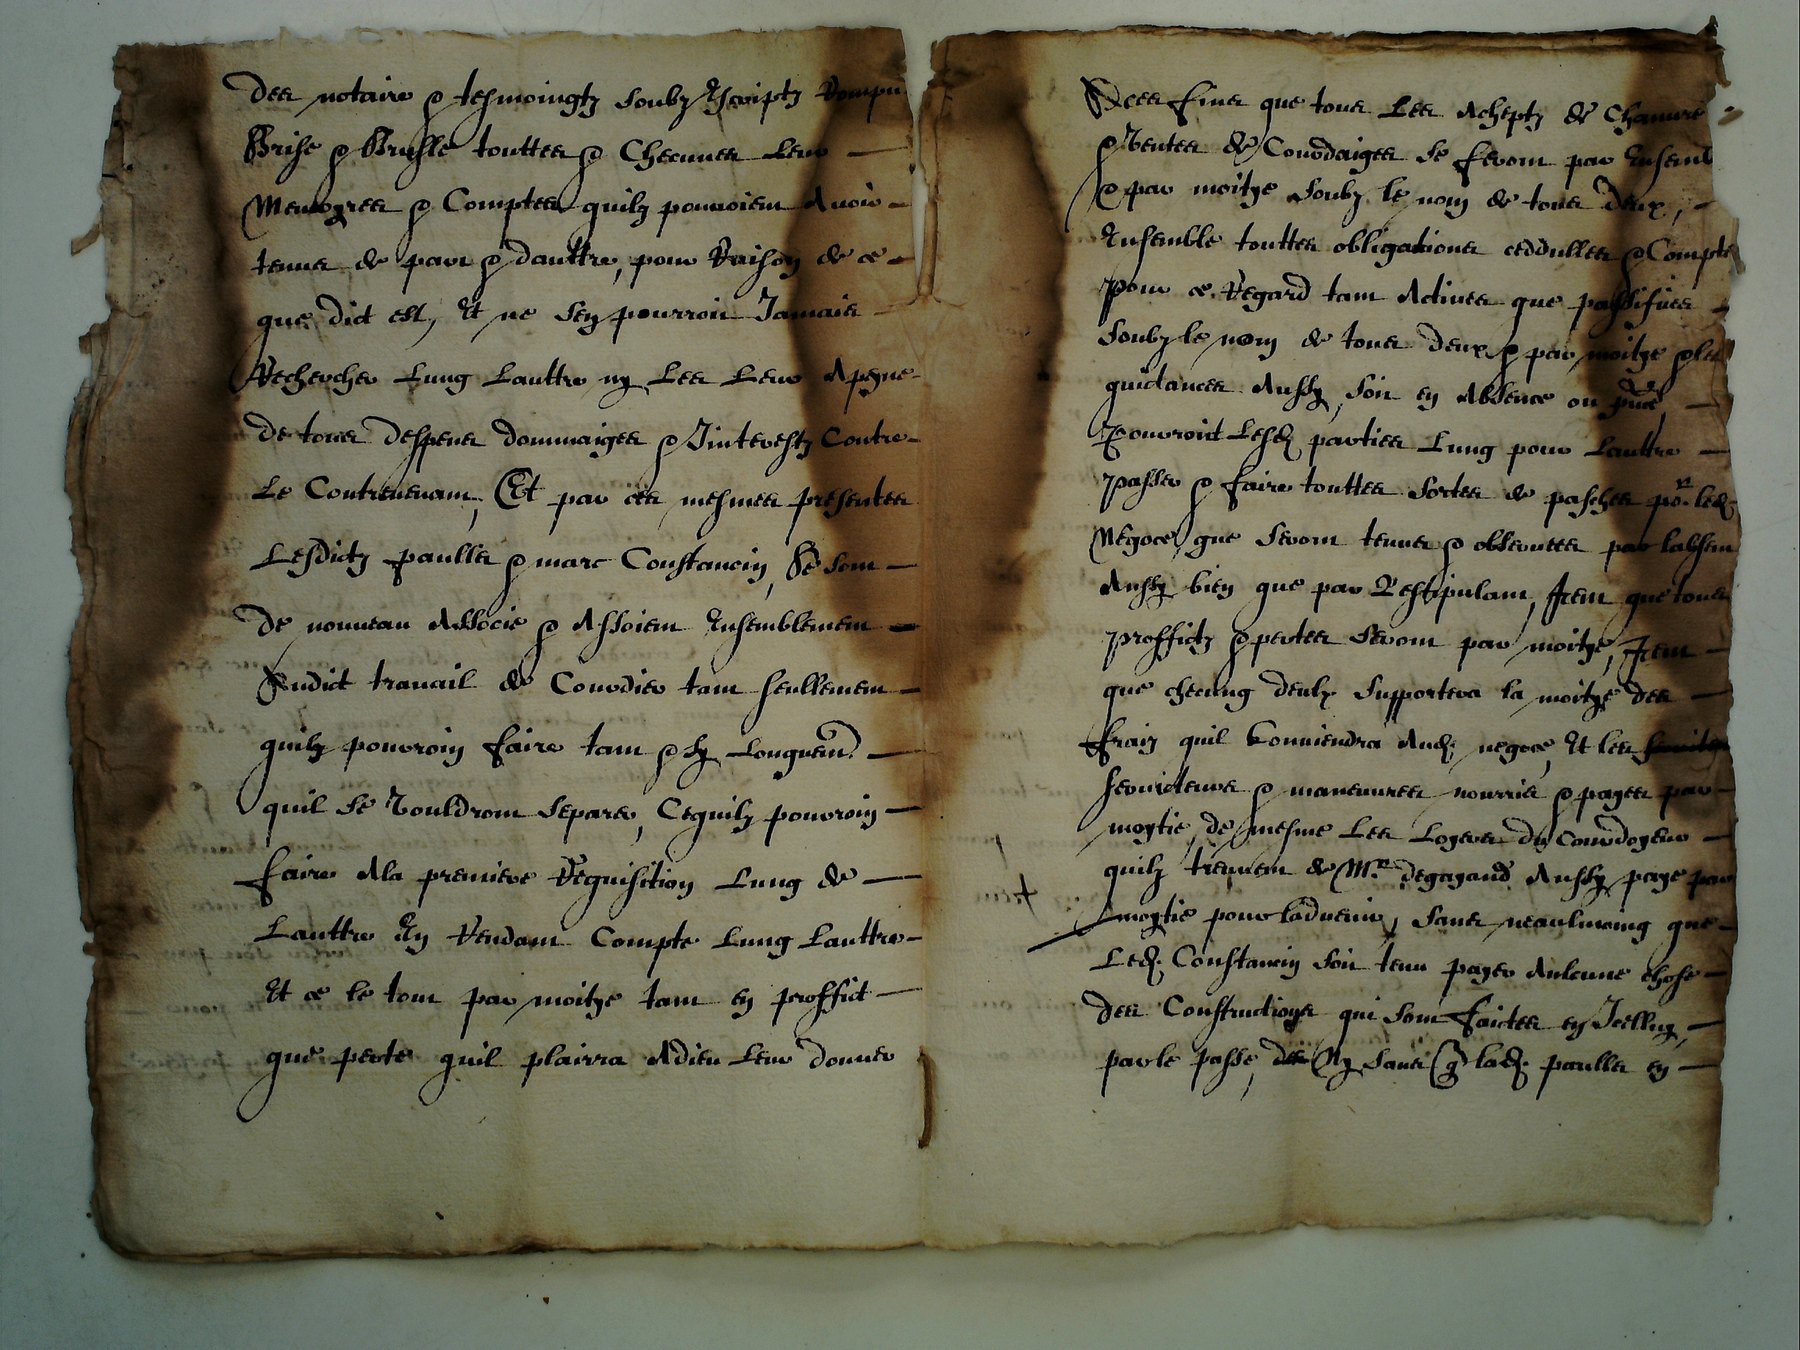 des notaire & tesmoingtz soubz escriptz Rompu
Brise & Brusle touttes & checunes leur
Memogres & Comptes quilz pouroient Avoir
tenus de part & dauttre, pour Raison de ce
que dict est, Et ne sen pourroit Jamais
Rechercher Lung Lauttre ny Les Leur Apeyne
de tous despens dommaiges & Jnterestz Contre
Le Contrevenant, Et par ces mesmes presentes
Lesdictz paulles & marc Constancin, Se sont
de nouveau Associe & Assoient Ensemblement
Audict travail de Courdier tant seullement
quilz pourroin faire tant & sy Longuemt
quil se Vouldront separer, Cequilz pourroin
faire Ala premiere Requisition Lung de
Lauttre En Rendant Compte Lung Lauttre
Et ce le tout par moitye tant en proffict
que perte quil plairra Adieu Leur donner
Aces fines que tous Les Acheptz de Chanvre
& Ventes de Courdaiges se feront par Ensembl
& par moitye soubz le nom de tous deux,
Ensemble touttes obligations ceddulles & Compte
pour ce Regard tant Actives que passifves
soubz le nom de tous deux & par moitye & les
quictances Aussy, soit en Absence ou pnce,
Pourroict Lesd parties Lung pour Lauttre
passer & faire touttes sortes de pasches por led
Negoce, que seront tenus & observees par labsent
Aussy bien que par Le stipulant, Item que tous
proffictz & pertes seront par moitye, Item
que checung deulx supportera la moitye des
fraiz quil Conviendra Aud negoce, Et les
serviteurs & maneuvres nourris & payes par
moytie, de mesme Les Logeres du Courdogeur
quilz tiennent de Mr degayand Aussy paye par
moytie pour ladvenir, sans neaulmoing que
Led Constancin soit tenu payer Aulcune chose
des Constructions qui sont faictes en Jcelluy,
par le passe, Ny sans q lad paulles en